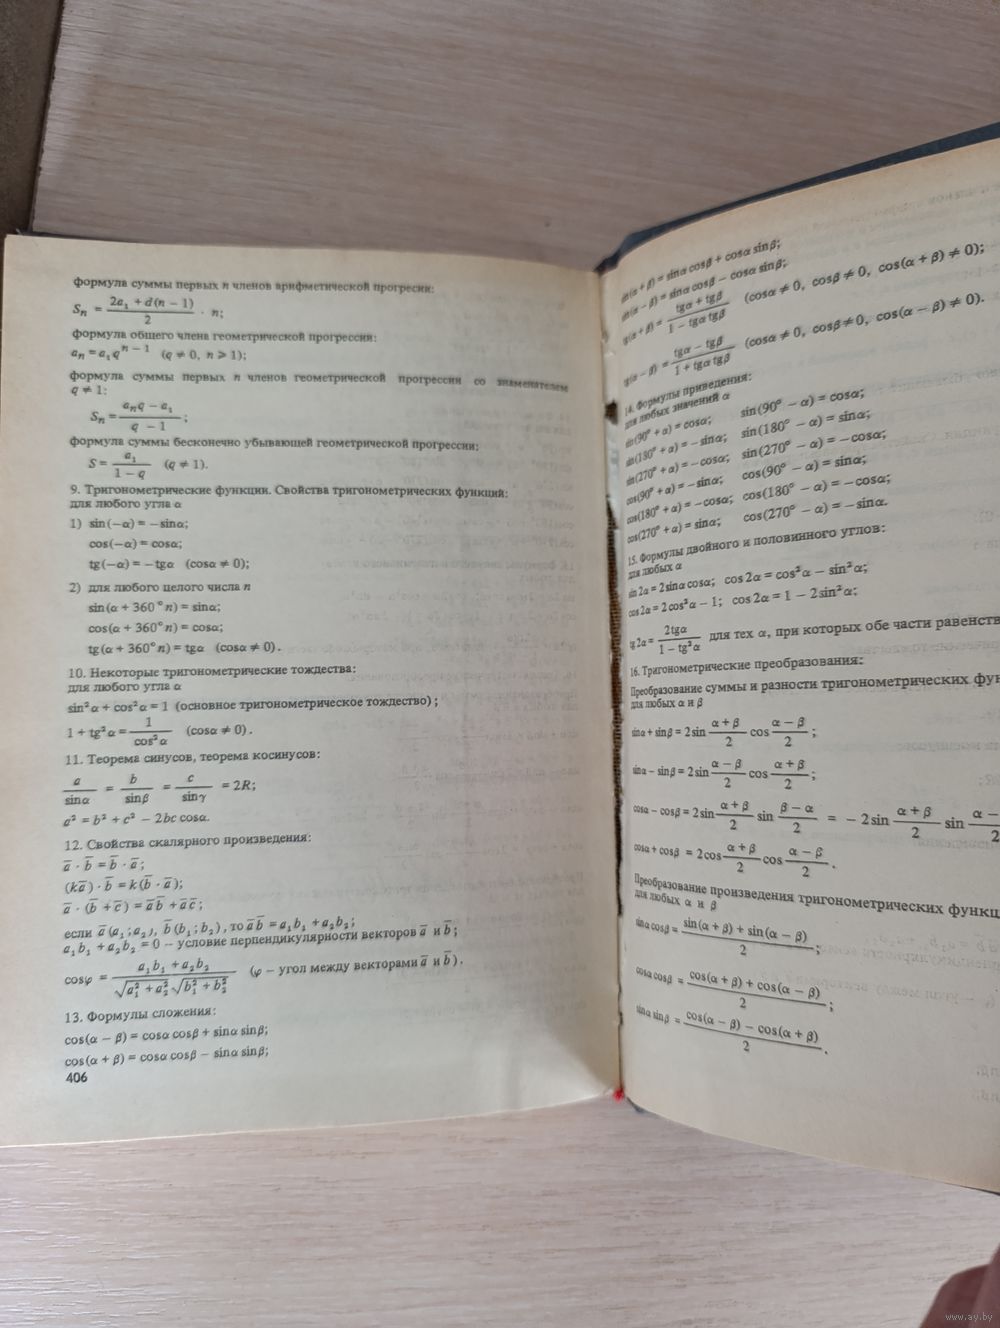 формула суммы первых n членов арифметической прогресии:
Sₙ = (2a₁ + d(n − 1))/2 · n;
формула общего члена геометрической прогрессии:
aₙ = a₁qⁿ⁻¹ (q ≠ 0, n > 1);
формула суммы первых n членов геометрической прогрессии со знаменателем
q ≠ 1:
Sₙ = (aₙq − a₁)/(q − 1);
формула суммы бесконечно убывающей геометрической прогрессии;
S = a₁/(1 − q) (q ≠ 1).
9. Тригонометрические функции. Свойства тригонометрических функций:
для любого угла α
1) sin(−α) = −sinα;
cos(−α) = cosα;
tg(−α) = −tgα (cosα ≠ 0);
2) для любого целого числа n
sin(α + 360°n) = sinα;
cos(α + 360°n) = cosα;
tg(α + 360°n) = tgα (cosα ≠ 0).
10. Некоторые тригонометрические тождества:
для любого угла α
sin²α + cos²α = 1 (основное тригонометрическое тождество);
1 + tg²α = 1/cos²α (cosα ≠ 0).
11. Теорема синусов, теорема косинусов:
a/sinα = b/sinβ = c/sinγ = 2R;
a² = b² + c² − 2bc cosα.
12. Свойства скалярного произведения:
a̅ · b̅ = b̅ · a̅;
(ka̅) · b̅ = k(b̅ · a̅);
a̅ · (b̅ + c̅) = a̅b̅ + a̅c̅;
если a̅(a₁; a₂), b̅(b₁; b₂), то a̅b̅ = a₁b₁ + a₂b₂;
a₁b₁ + a₂b₂ = 0 − условие перпендикулярности векторов a̅ и b̅;
cosφ = (a₁b₁ + a₂b₂)/(√(a₁² + a₂²) √(b₁² + b₂²)) (φ − угол между векторами a̅ и b̅).
13. Формулы сложения:
cos(α − β) = cosα cosβ + sinα sinβ;
cos(α + β) = cosα cosβ − sinα sinβ;
406
sin(α + β) = sinα cosβ + cosα sinβ;
sin(α − β) = sinα cosβ − cosα sinβ;
tg(α + β) = (tgα + tgβ)/(1 − tgα tgβ) (cosα ≠ 0, cosβ ≠ 0, cos(α + β) ≠ 0);
tg(α − β) = (tgα − tgβ)/(1 + tgα tgβ) (cosα ≠ 0, cosβ ≠ 0, cos(α − β) ≠ 0).
14. Формулы приведения:
для любых значений α
sin(90° + α) = cosα; sin(90° − α) = cosα;
sin(180° + α) = −sinα; sin(180° − α) = sinα;
sin(270° + α) = −cosα; sin(270° − α) = −cosα;
cos(90° + α) = −sinα; cos(90° − α) = sinα;
cos(180° + α) = −cosα; cos(180° − α) = −cosα;
cos(270° + α) = sinα; cos(270° − α) = −sinα.
15. Формулы двойного и половинного углов:
для любых α
sin2α = 2sinα cosα; cos2α = cos²α − sin²α;
cos2α = 2cos²α − 1; cos2α = 1 − 2sin²α;
tg2α = 2tgα/(1 − tg²α) для тех α, при которых обе части равенств
16. Тригонометрические преобразования:
Преобразование суммы и разности тригонометрических фун
для любых α и β
sinα + sinβ = 2sin (α + β)/2 cos (α − β)/2;
sinα − sinβ = 2sin (α − β)/2 cos (α + β)/2;
cosα − cosβ = 2sin (α + β)/2 sin (β − α)/2 = −2sin (α + β)/2 sin (α −/2
cosα + cosβ = 2cos (α + β)/2 cos (α − β)/2.
Преобразование произведения тригонометрических функц
для любых α и β
sinα cosβ = (sin(α + β) + sin(α − β))/2;
cosα cosβ = (cos(α + β) + cos(α − β))/2;
sinα sinβ = (cos(α − β) − cos(α + β))/2.
www.ay.by